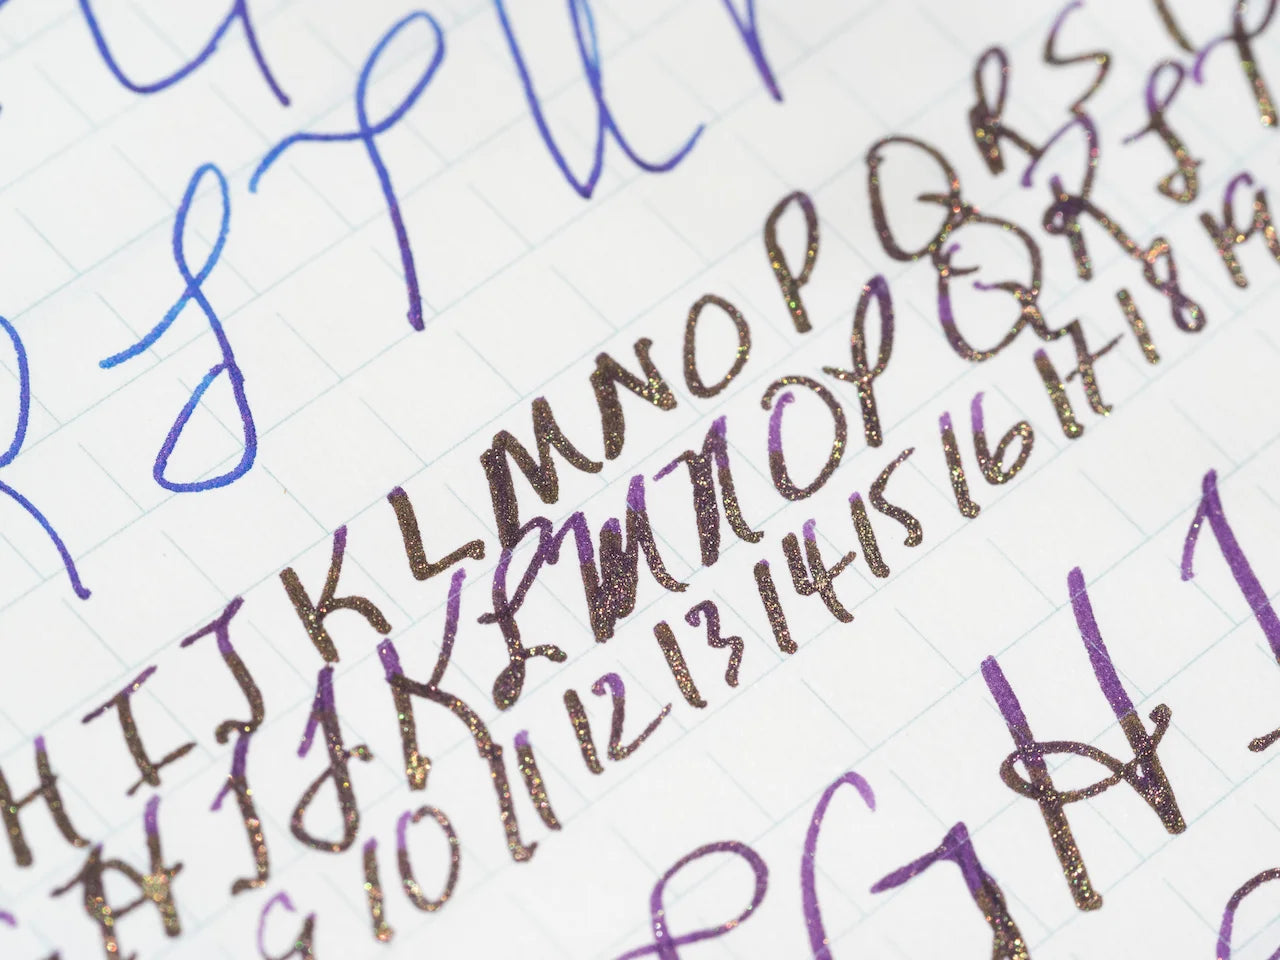 J T U
H I J K L M N O P Q R S
H I J K L M N O P Q R S
9 10 11 12 13 14 15 16 17 18 19
G H